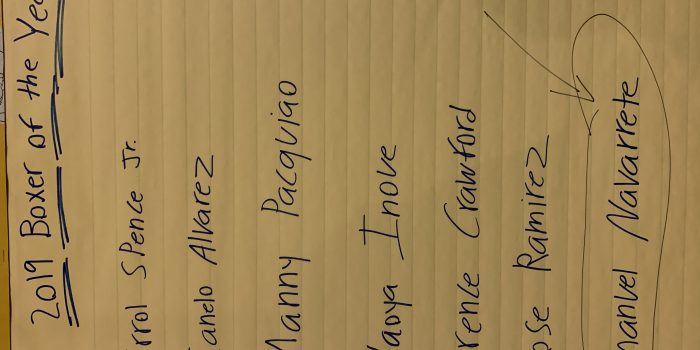 2019 Boxer of the Yea
rrol Spence Jr.
anelo Alvarez
Manny Pacquiao
Naoya Inoue
rence Crawford
ose Ramirez
manuel Navarrete